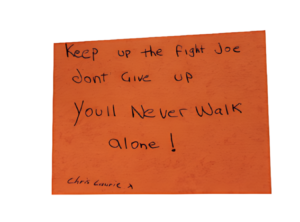 Keep up the fight Joe
dont Give up
Youll Never Walk
alone!
Chris